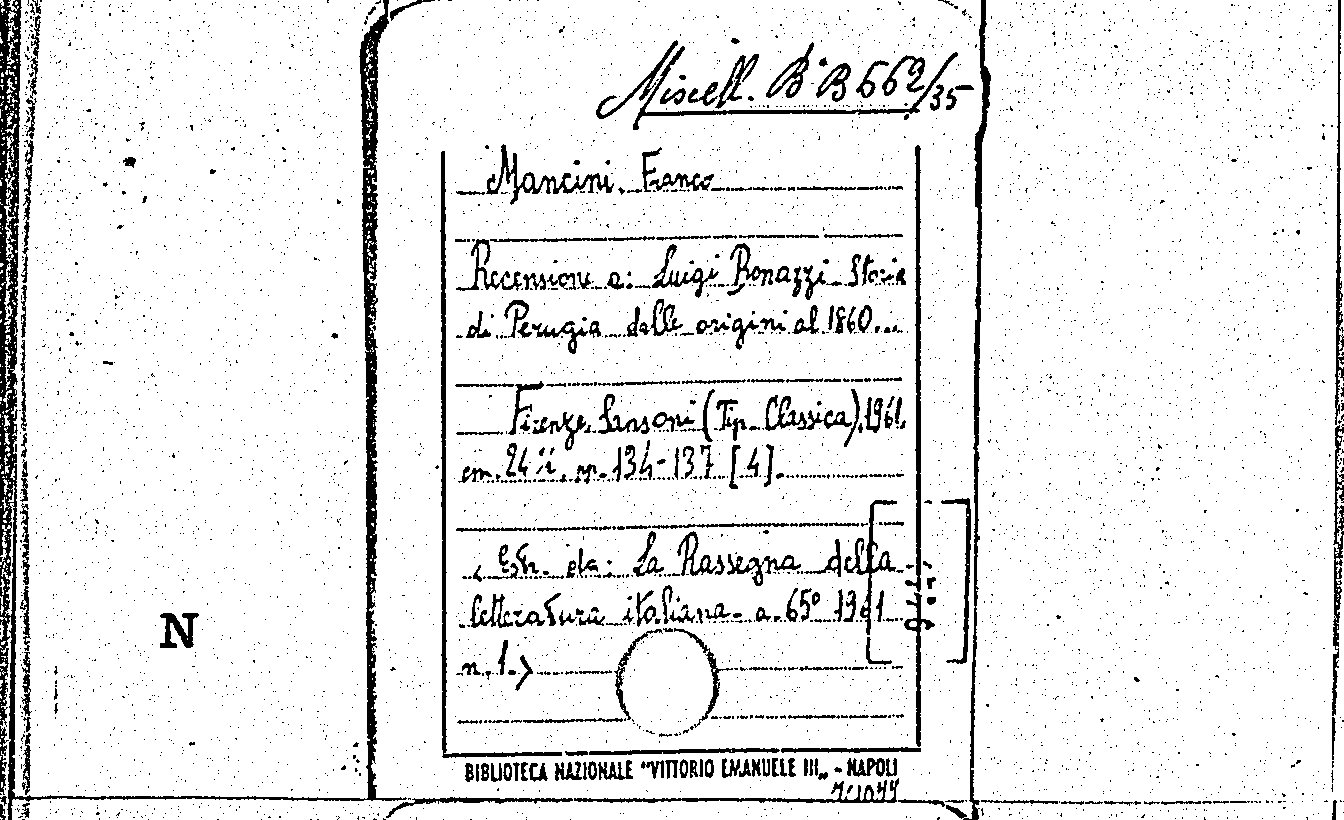 Miscell. B. B 662/35
Mancini, Franco
Recensione a: Luigi Bonazzi. Storia
di Perugia dalle origini al 1860...
Firenze, Sansoni (Tip. Classica), 1961.
cm. 24 ½. pp. 134-137 [4].
< Estr. da: La Rassegna della
letteratura italiana. a. 65º 1961
n. 1. >
N
BIBLIOTECA NAZIONALE "VITTORIO EMANUELE III„ - NAPOLI